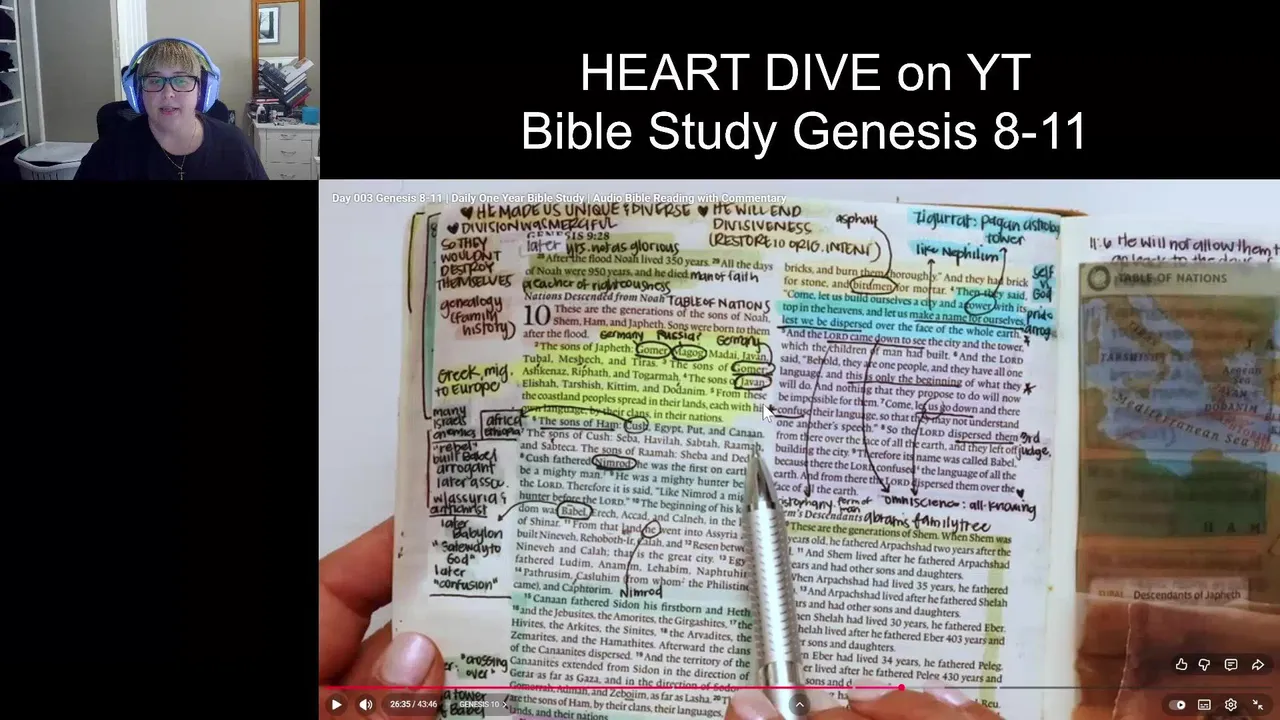 HEART DIVE on YT
Bible Study Genesis 8-11
Day 003 Genesis 8-11 | Daily One Year Bible Study | Audio Bible Reading with Commentary
♥ HE MADE US UNIQUE & DIVERSE ♥ HE WILL END
♥ DIVISION WAS MERCIFUL DIVISIVENESS
(RESTORE TO ORIG. INTENT)
SO THEY
WOULDN'T
DESTROY
THEMSELVES
genealogy
(family
history)
GENESIS 9:28
later yrs. not as glorious
After the flood Noah lived 350 years. 29 All the days
of Noah were 950 years, and he died. man of faith
preacher of righteousness
Nations Descended from Noah TABLE OF NATIONS
10 These are the generations of the sons of Noah,
Shem, Ham, and Japheth. Sons were born to them
after the flood.
Germany Russia? Germany
2 The sons of Japheth: Gomer, Magog, Madai, Javan,
Tubal, Meshech, and Tiras. 3 The sons of Gomer:
Ashkenaz, Riphath, and Togarmah. 4 The sons of Javan:
Elishah, Tarshish, Kittim, and Dodanim. 5 From these
the coastland peoples spread in their lands, each with his
own language, by their clans, in their nations.
Greek, mid.
to Europe
many
Israels
enemies
africa
ethiopia
"rebel"
built Babel
arrogant
later assoc.
w/assyria &
antichrist
later
Babylon
"gateway to
God"
later
"confusion"
6 The sons of Ham: Cush, Egypt, Put, and Canaan.
7 The sons of Cush: Seba, Havilah, Sabtah, Raamah,
and Sabteca. The sons of Raamah: Sheba and
8 Cush fathered Nimrod; he was the first on earth
be a mighty man. 9 He was a mighty hunter
the LORD. Therefore it is said, "Like Nimrod a
hunter before the LORD." 10 The beginning of his
was Babel, Erech, Accad, and Calneh, in the
of Shinar. 11 From that land he went into Assyria,
built Nineveh, Rehoboth-Ir, Calah, and 12 Resen
Nineveh and Calah; that is the great city. 13
fathered Ludim, Anamim, Lehabim,
14 Pathrusim, Casluhim (from whom the
came), and Caphtorim. Nimrod
15 Canaan fathered Sidon his firstborn and Heth,
16 and the Jebusites, the Amorites, the Girgashites, 17 the
Hivites, the Arkites, the Sinites, 18 the Arvadites, the
Zemarites, and the Hamathites. Afterward the clans
of the Canaanites dispersed. 19 And the territory of the
Canaanites extended from Sidon in the direction of
Gerar as far as Gaza, and in the direction of
Gomorrah, Admah, and Zeboiim, as far as Lasha. 20
are the sons of Ham, by their clans, their languages,
lands, and their nations.
"crossing
over"
asphalt
zigurrat: pagan
tower
like Nephilim
self
vs.
God
pride
bricks, and burn them thoroughly." And they had brick
for stone, and bitumen for mortar. 4 Then they said,
"Come, let us build ourselves a city and a tower with its
top in the heavens, and let us make a name for ourselves,
lest we be dispersed over the face of the whole earth."
5 And the LORD came down to see the city and the tower,
which the children of man had built. 6 And the LORD
said, "Behold, they are one people, and they have all one
language, and this is only the beginning of what they
will do. And nothing that they propose to do will now
be impossible for them. 7 Come, let us go down and there
confuse their language, so that they may not understand
one another's speech." 8 So the LORD dispersed them
from there over the face of all the earth, and they left off
building the city. 9 Therefore its name was called Babel,
because there the LORD confused the language of all the
earth. And from there the LORD dispersed them over the
face of all the earth.
3rd
judge,
omniscience: all-knowing
Descendants abrams family tree
These are the generations of Shem. When Shem was
years old, he fathered Arpachshad two years after the
11 And Shem lived after he fathered Arpachshad
years and had other sons and daughters.
When Arpachshad had lived 35 years, he fathered
13 And Arpachshad lived after he fathered Shelah
years and had other sons and daughters.
Shelah had lived 30 years, he fathered Eber.
Shelah lived after he fathered Eber 403 years and
other sons and daughters.
Eber had lived 34 years, he fathered Peleg.
lived after he fathered Peleg 430 years and
sons and
11:6 He will not allow them
TABLE OF NATIONS
TARSHISH
Aegean
Sea
DODANIM
Mediterranean Sea
H A M
Descendants of Japheth
26:35 / 43:46
GENESIS 10